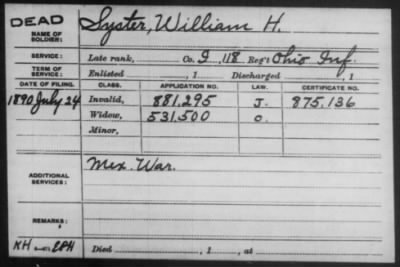 DEAD
NAME OF SOLDIER: Syster, William H.
SERVICE: Late rank, Co. I, 118 Reg't Ohio Inf.
TERM OF SERVICE: Enlisted , 1 Discharged , 1
DATE OF FILING. CLASS. APPLICATION NO. LAW. CERTIFICATE NO.
1890 July 24 Invalid, 881,295 J. 875,136
Widow, 531,500 O.
Minor,
ADDITIONAL SERVICES: Mex. War.
REMARKS:
KH EPH Died , 1 , at